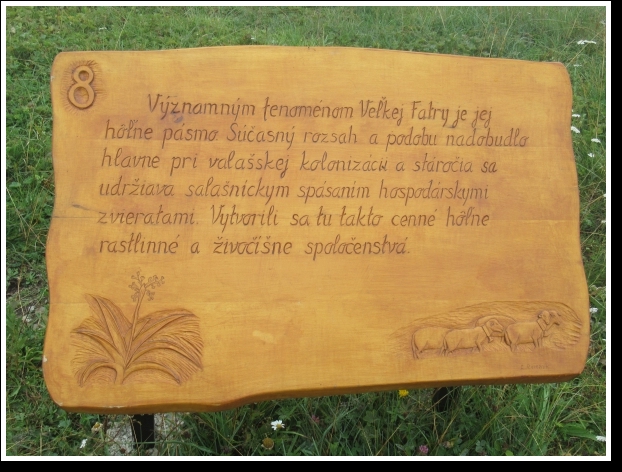 8
Významným fenoménom Veľkej Fatry je jej
hôľne pásmo Súčasný rozsah a podobu nadobudlo
hlavne pri valašskej kolonizácii a stáročia sa
udržiava salašníckym spásaním hospodárskymi
zvieratami. Vytvorili sa tu takto cenné hôľne
rastlinné a živočíšne spoločenstvá.